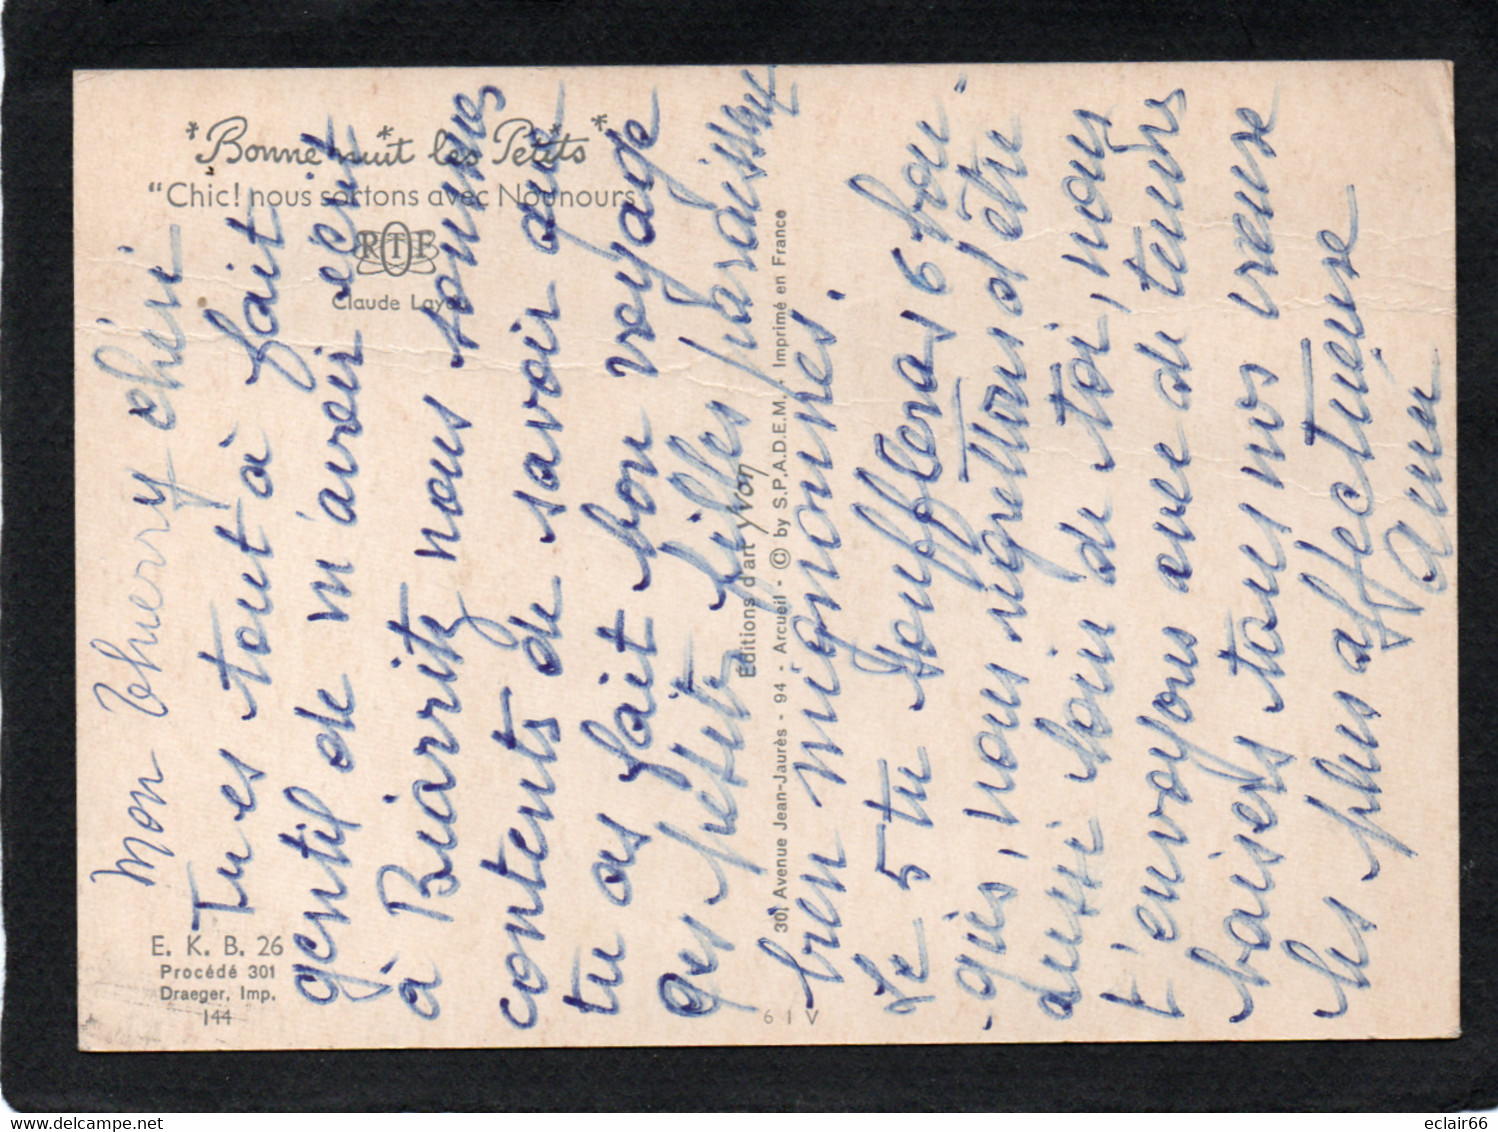 *Bonne nuit les Petits*
"Chic! nous sortons avec Nounours"
RTF
Claude Laydu
E. K. B. 26
Procédé 301
Draeger, Imp.
144
Éditions d'art yvon
30, Avenue Jean-Jaurès - 94 - Arcueil - © by S.P.A.D.E.M. - Imprimé en France
6 I V
Mon Thierry chéri
Tu es tout à fait
gentil de m'avoir écrit
à Biarritz nous sommes
contents de savoir que
tu as fait bon voyage
ces petites filles paraissent
bien mignonnes.
Le 5 tu souffleras 6 bou-
-gies, nous regrettons d'être
aussi loin de toi, nous
t'envoyons avec de tendres
baisers tous nos vœux
les plus affectueux